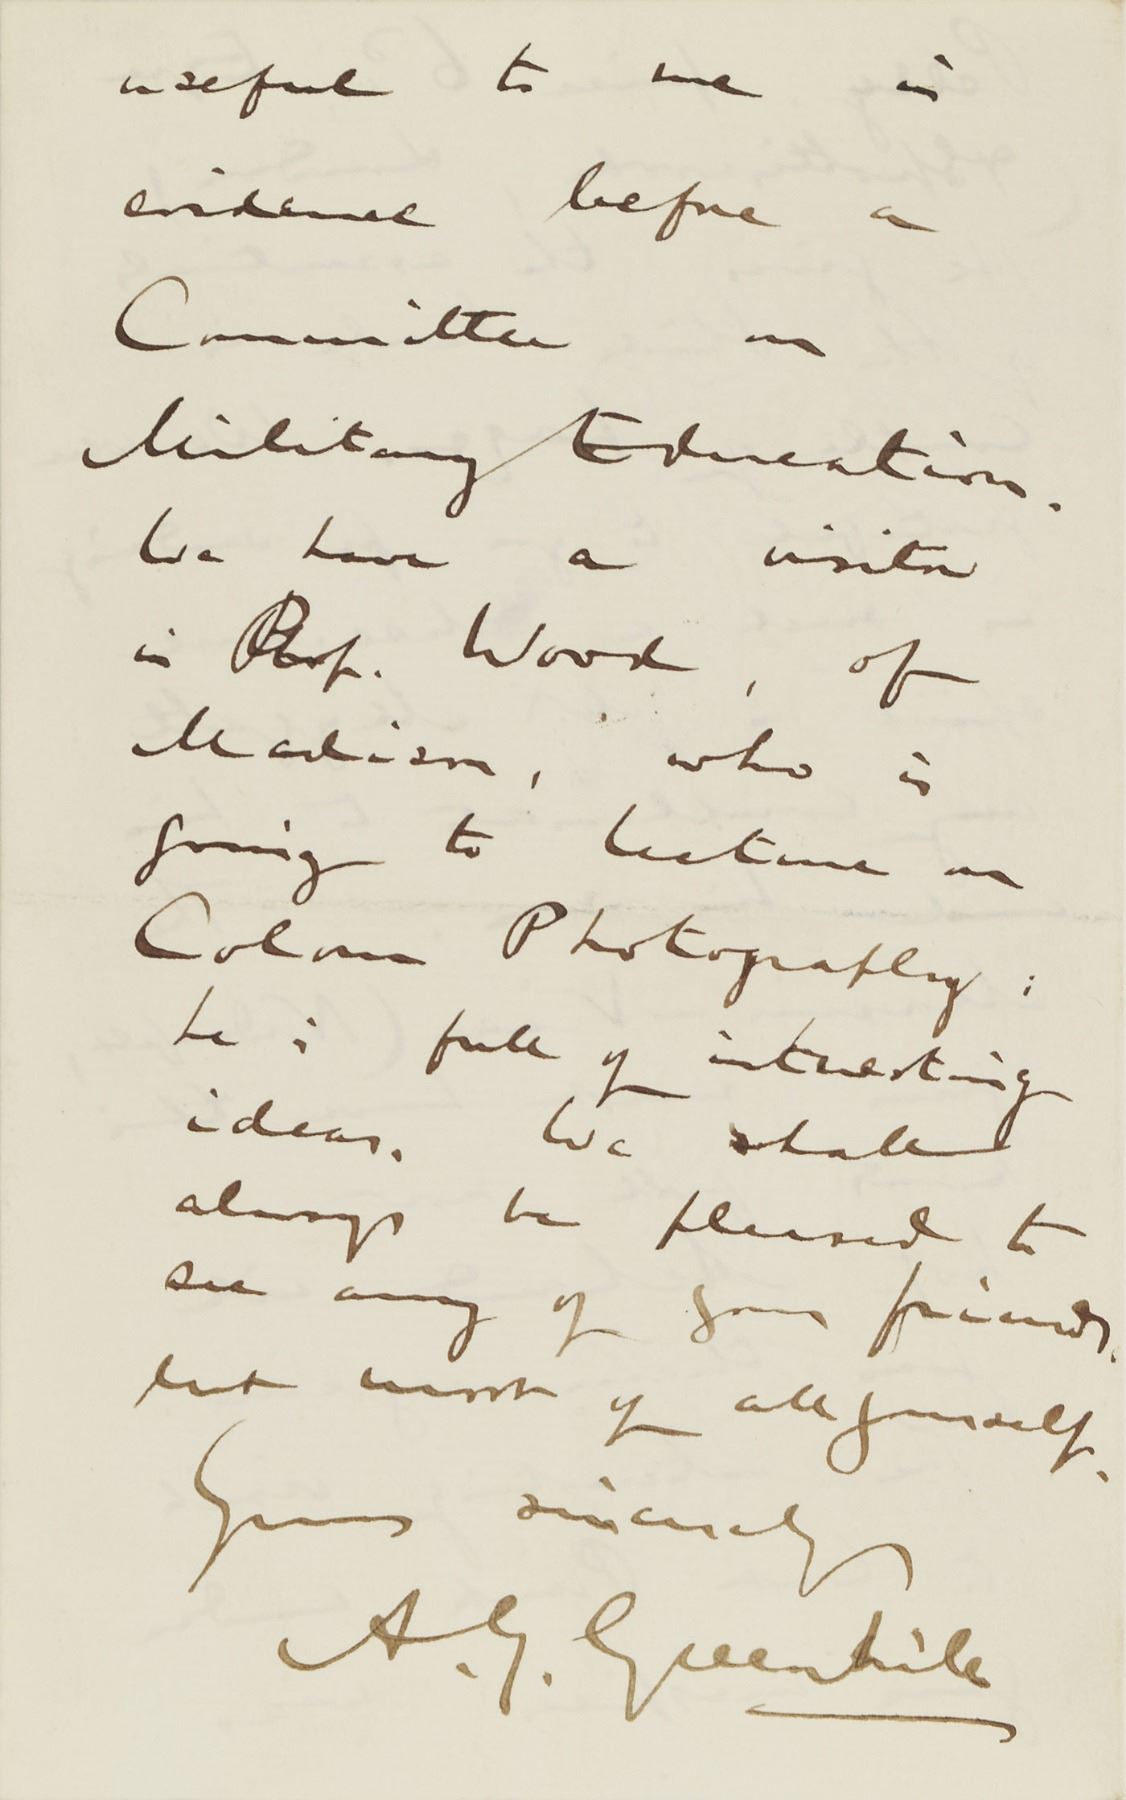 useful to me in
evidence before a
Committee on
Military Education.
We have a visitor
in Prof. Wood, of
Madison, who is
going to lecture on
Colour Photography:
he is full of interesting
ideas. We shall
always be pleased to
see any of your friends,
but most of all yourself.
Yours sincerely
A. G. Greenhill